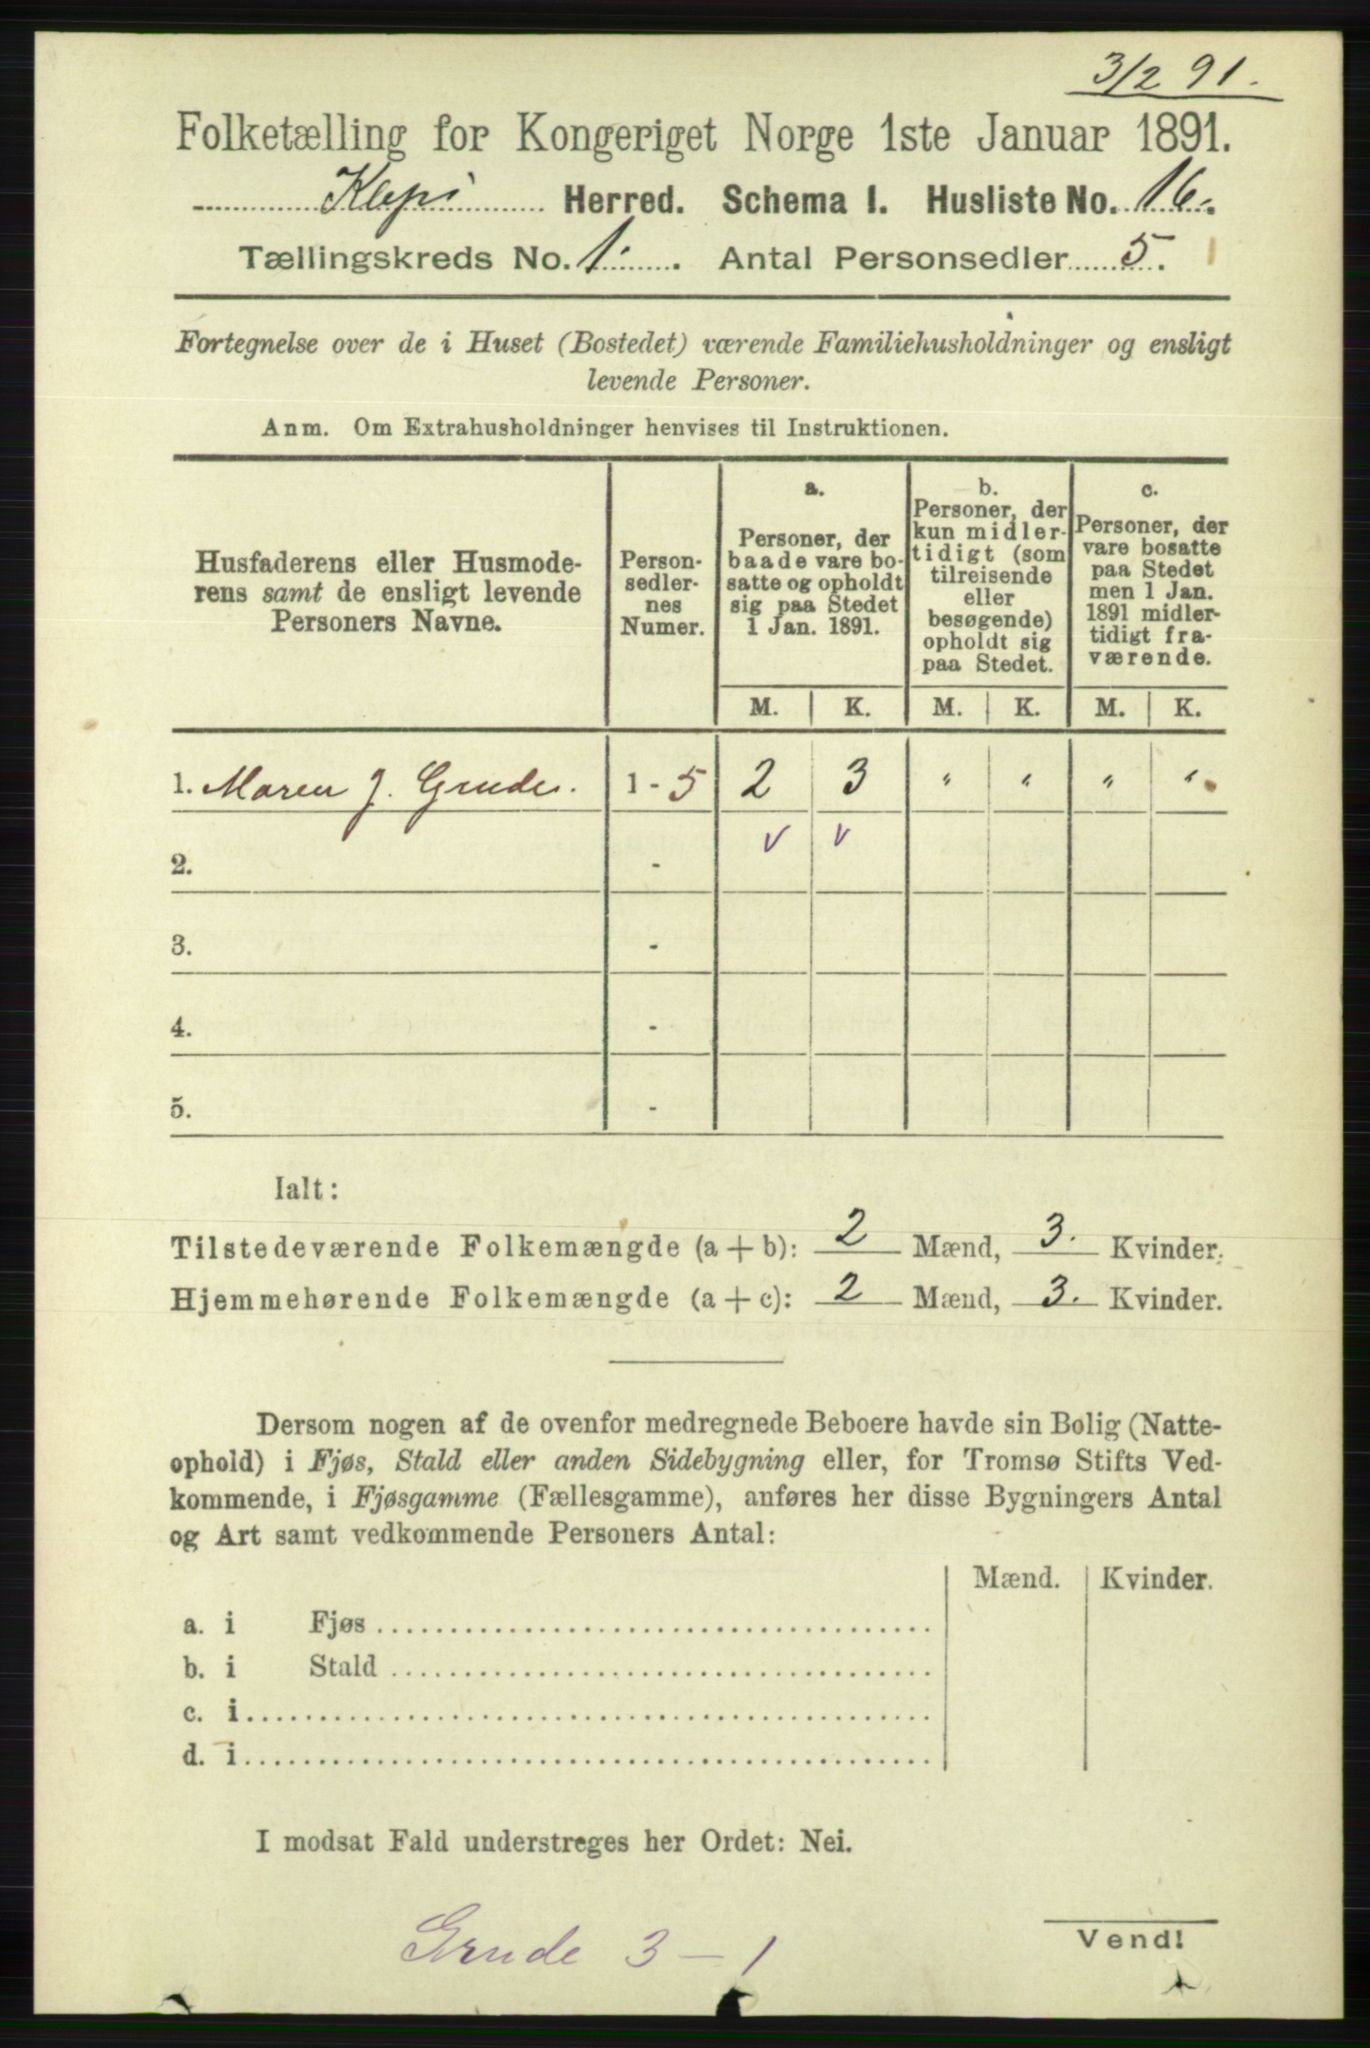 3/2 91.
Folketælling for Kongeriget Norge 1ste Januar 1891.
Klepi Herred. Schema I. Husliste No. 16.
Tællingskreds No. 1. Antal Personsedler 5.
Fortegnelse over de i Huset (Bostedet) værende Familiehusholdninger og ensligt
levende Personer.
Anm. Om Extrahusholdninger henvises til Instruktionen.
Husfaderens eller Husmode-
rens samt de ensligt levende
Personers Navne.
Person-
sedler-
nes
Numer.
a.
Personer, der
baade vare bo-
satte og opholdt
sig paa Stedet
1 Jan. 1891.
b.
Personer, der
kun midler-
tidigt (som
tilreisende
eller
besøgende)
opholdt sig
paa Stedet.
c.
Personer, der
vare bosatte
paa Stedet
men 1 Jan.
1891 midler-
tidigt fra-
værende.
M. K. M. K. M. K.
1. Maren J. Grude. 1 - 5 2 3 " " " "
2. - v v
3. -
4. -
5. -
Ialt:
Tilstedeværende Folkemængde (a + b): 2 Mænd, 3. Kvinder.
Hjemmehørende Folkemængde (a + c): 2 Mænd, 3. Kvinder.
Dersom nogen af de ovenfor medregnede Beboere havde sin Bolig (Natte-
ophold) i Fjøs, Stald eller anden Sidebygning eller, for Tromsø Stifts Ved-
kommende, i Fjøsgamme (Fællesgamme), anføres her disse Bygningers Antal
og Art samt vedkommende Personers Antal:
Mænd. Kvinder.
a. i Fjøs
b. i Stald
c. i
d. i
I modsat Fald understreges her Ordet: Nei.
Grude 3 - 1
Vend!